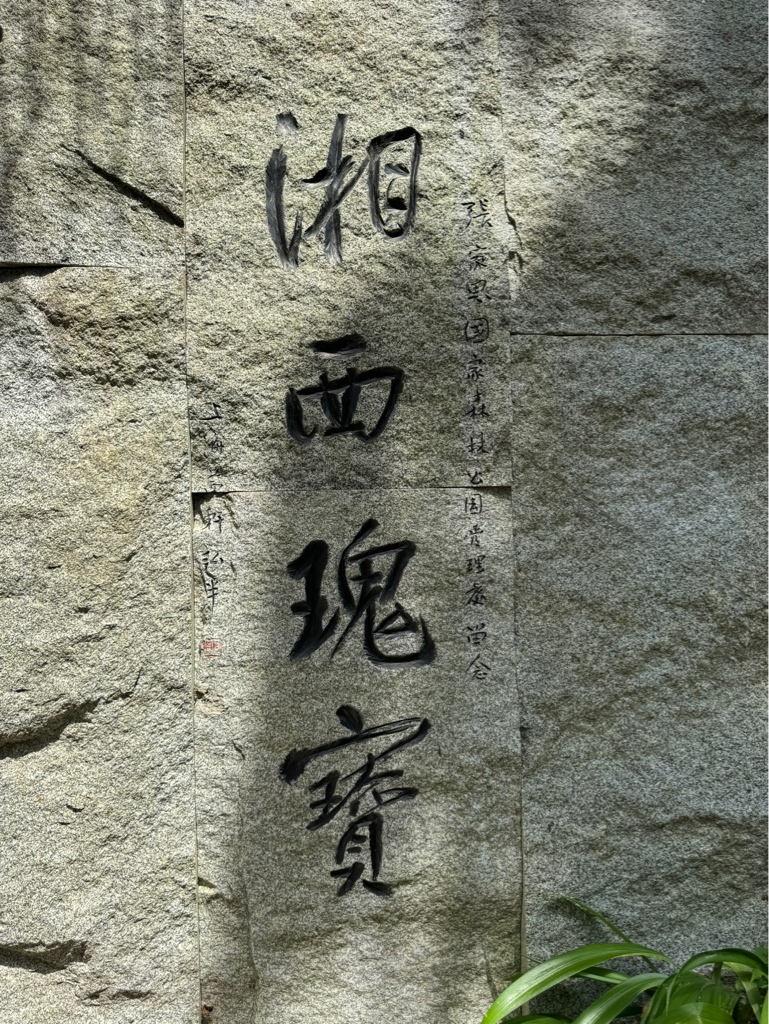 张家界国家森林公园管理处留念
湘西瑰寶
上海